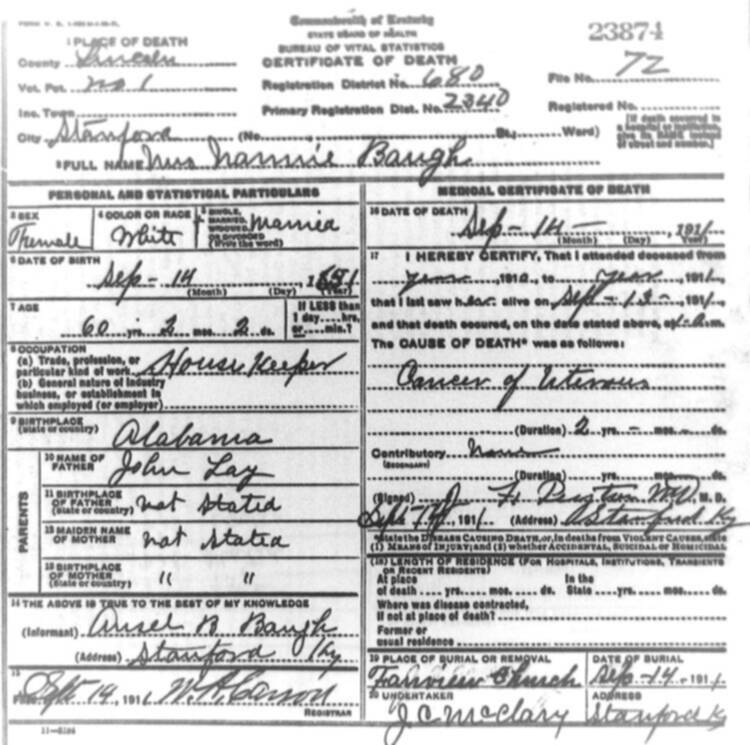 Commonwealth of Kentucky
STATE BOARD OF HEALTH
BUREAU OF VITAL STATISTICS
CERTIFICATE OF DEATH
23874
1 PLACE OF DEATH
County Lincoln
Vot. Pct. No 1
Inc. Town
City Stanford (No. St., Ward)
Registration District No. 680
Primary Registration Dist. No. 2340
File No. 72
Registered No.
[If death occurred in a hospital or institution, give its NAME instead of street and number.]
2 FULL NAME Mrs Nannie Baugh
PERSONAL AND STATISTICAL PARTICULARS
3 SEX Female
4 COLOR OR RACE White
5 SINGLE, MARRIED, WIDOWED, OR DIVORCED (Write the word) Married
6 DATE OF BIRTH
Sep - 14
(Month) (Day) (Year)
7 AGE
60 yrs. 2 mos. 2 ds.
If LESS than 1 day hrs. or min.?
8 OCCUPATION
(a) Trade, profession, or particular kind of work House Keeper
(b) General nature of industry business, or establishment in which employed (or employer)
9 BIRTHPLACE
(State or country) Alabama
PARENTS
10 NAME OF FATHER John Lay
11 BIRTHPLACE OF FATHER (State or country) not Stated
12 MAIDEN NAME OF MOTHER not Stated
13 BIRTHPLACE OF MOTHER (State or country) " "
14 THE ABOVE IS TRUE TO THE BEST OF MY KNOWLEDGE
(Informant) Ansel B Baugh
(Address) Stanford Ky
15
Sept 19, 1911 W. A. Carson
REGISTRAR
MEDICAL CERTIFICATE OF DEATH
16 DATE OF DEATH
Sep - 14 -, 1911
(Month) (Day) (Year)
17 I HEREBY CERTIFY, That I attended deceased from
year 1910, to year, 1911,
that I last saw her alive on Sep - 13 -, 1911
and that death occured, on the date stated above, at a.m.
The CAUSE OF DEATH* was as follows:
Cancer of Uterous
(Duration) 2 yrs. - mos. - ds.
Contributory None
(SECONDARY)
(Duration) yrs. mos. ds.
(Signed) M.D.
Sept, 1911 (Address) Stanford Ky
*State the DISEASE CAUSING DEATH, or, in deaths from VIOLENT CAUSES, state
(1) MEANS OF INJURY; and (2) whether ACCIDENTAL, SUICIDAL or HOMICIDAL
(18) LENGTH OF RESIDENCE (FOR HOSPITALS, INSTITUTIONS, TRANSIENTS OR RECENT RESIDENTS)
At place of death yrs. mos. ds. In the State yrs. mos. ds.
Where was disease contracted,
if not at place of death?
Former or
usual residence
19 PLACE OF BURIAL OR REMOVAL
Fairview Church
DATE OF BURIAL
Sep - 14 - 1911
20 UNDERTAKER
J C McClary
ADDRESS
Stanford Ky